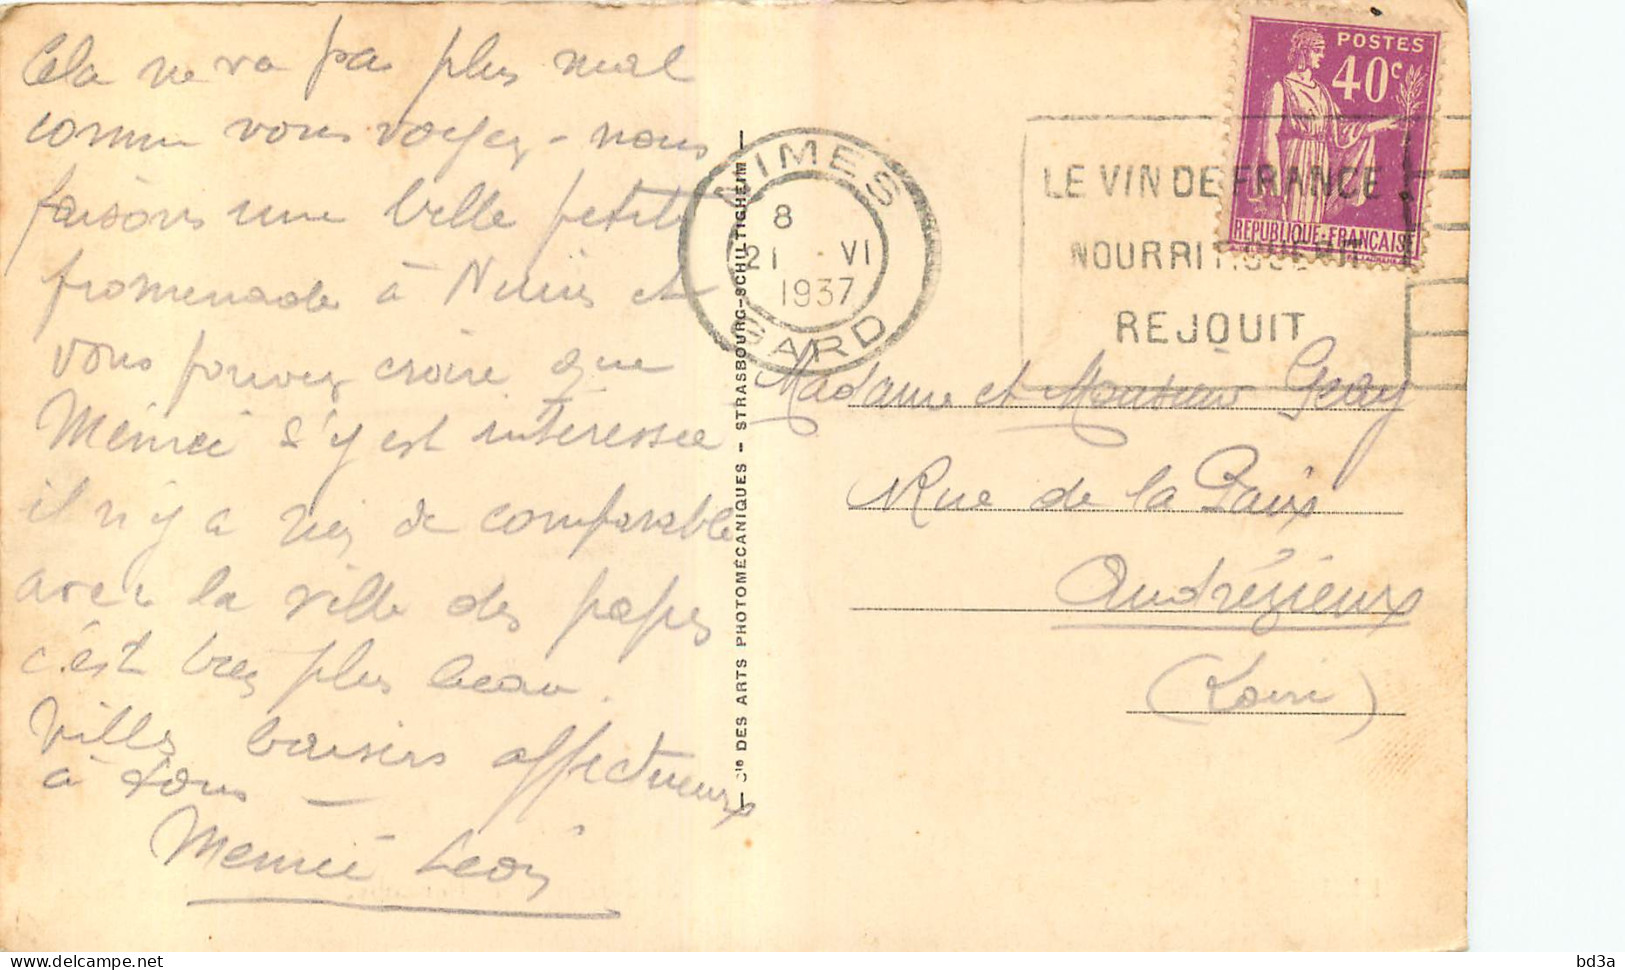 Cela ne va pas plus mal
comme vous voyez - nous
faisons une belle petite
promenade à Nîmes et
vous pouvez croire que
Mémée s'y est intéressée
il n'y a rien de comparable
avec la ville des papes
c'est bien plus beau.
Milles baisers affectueux
à tous —
Mémée Léon
Cie DES ARTS PHOTOMÉCANIQUES - STRASBOURG-SCHILTIGHEIM
NIMES
8
21 VI
1937
GARD
LE VIN DE FRANCE
NOURRIT
REJOUIT
POSTES
40c
REPUBLIQUE-FRANÇAISE
Madame et Monsieur Geay
Rue de la Paix
Andrézieux
(Loire)
bd3a